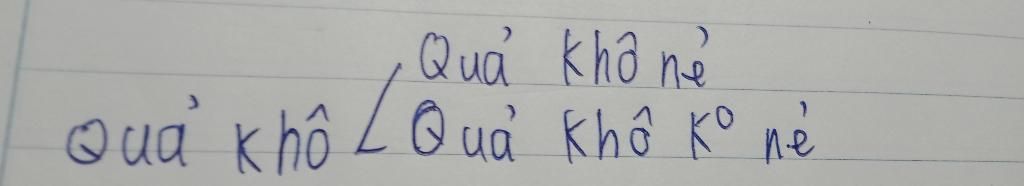 Quả khô nẻ
Quả khô < Quả khô k° nẻ